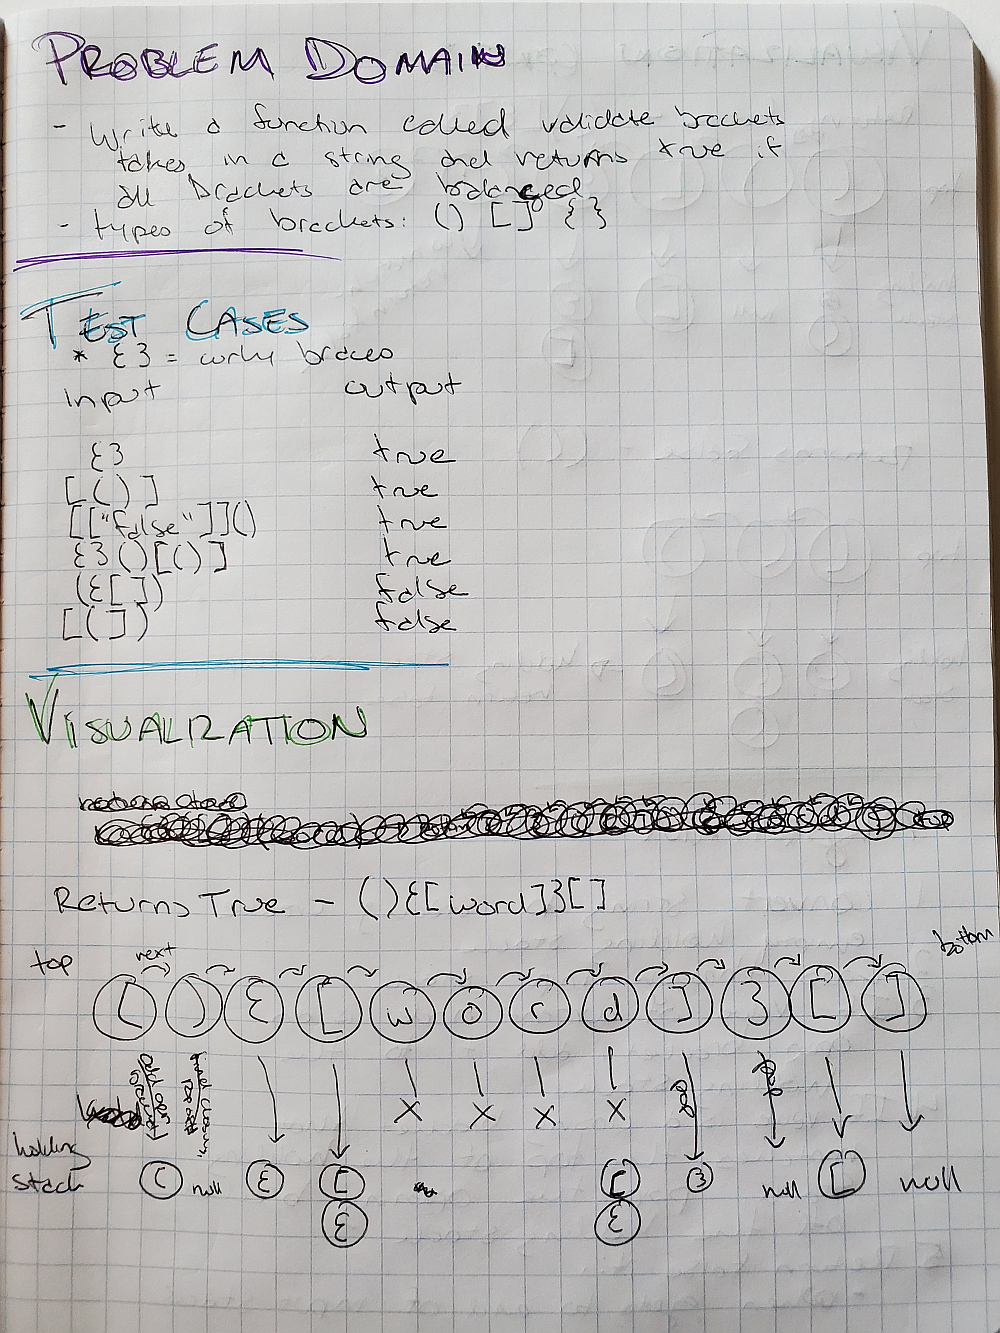 PROBLEM DOMAIN
- Write a function called validate brackets
takes in a string and returns true if
all brackets are balanced
- types of brackets: () [] { }
TEST CASES
* {} = curly braces
Input output
{} true
[()] true
[["false"]]() true
{}()[()] true
({[]) false
[(]) false
VISUALIZATION
Returns True - (){[word]}[]
top next bottom
( ) { [ w o r d ] } [ ]
x x x x pop pop
holding
stack ( null { [ [ } null [ null
{ {